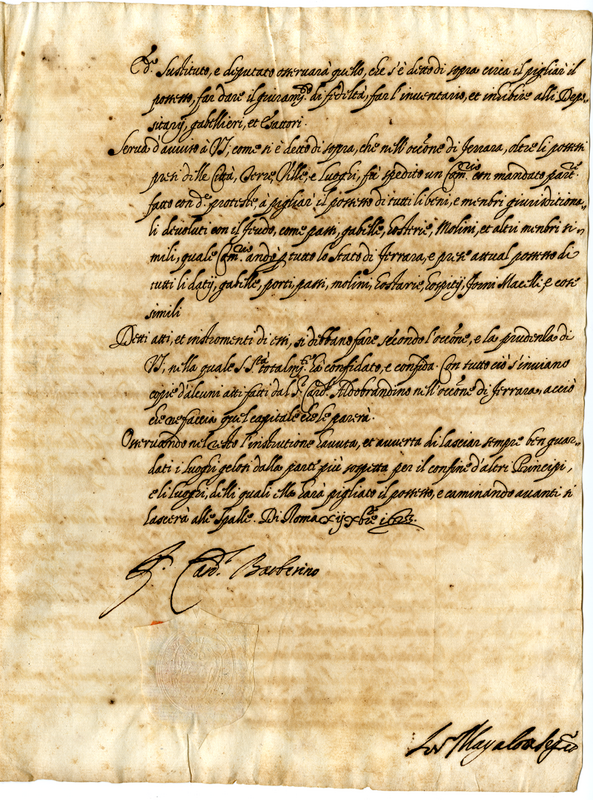 Ed. sustituto, e diputato osservarà quello, che s'è ditto di sopra circa il pigliar il
possesso, far dare il giuramto. di fedeltà, far l'inventario, et inhibire alli Depo-
sitarij, gabellieri, et esattori.
Serva d'avviso a VS, come si è ditto di sopra, che nell'occne. di Ferrara, oltre li possessi
presi delle Città, Terre, Ville, e luoghi, fù spedito un Comrio. con mandato
fatto con de. proteste a pigliar il possesso di tutti li beni, e membri giurisditiona-
li devoluti con il feudo, come passi, gabelle, hostrie, Molini, et altri membri si-
mili, quale Comrio. andò p tutto lo Stato di Ferrara, e prese attual possesso di
tutti li datij, gabelle, porti, passi, molini, hostarie, hospitij, forni Macelli, e cose
simili
Detti atti, et instromenti di essi, si debbano fare secondo l'occne., e la prudenza di
VS, nella quale S. Sta. totalmte. hà confidato, e confida. Con tutto ciò s'inviano
copie d'alcuni atti fatti dal Sr. Card. Aldobrandino nell'occne. di Ferrara, acciò
che ne faccia quel capitale che le parerà.
Osservando nel resto l'instrutione havuta, et averta di lasciar sempre ben guar-
dati i luoghi gelosi dalla parte più sospetta per il confine d'altri Principi,
e li luoghi, delli quali ella harà pigliato il possesso, e caminando avanti si
lascerà alle spalle. Di Roma xij xbre
F. Cardl. Barberino